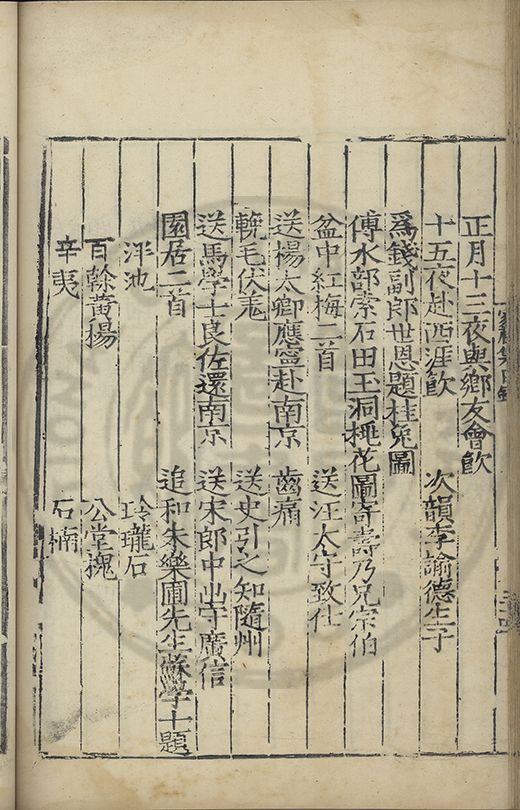 正月十三夜與鄉友會飲
十五夜赴西涯飲　次韻李諭德生子
爲錢副郎世恩題桂兔圖
傅水部索石田玉洞桃花圖寄壽乃兄宗伯
盆中紅梅二首　送汪太守致仕
送楊太卿應寧赴南京　齒痛
輓毛伏羗　送史引之知隨州
送馬學士良佐還南京　送宋郎中出守廣信
園居二首　追和朱樂圃先生蘇學十題
泮池　玲瓏石
百榦黃楊　公堂槐
辛夷　石楠